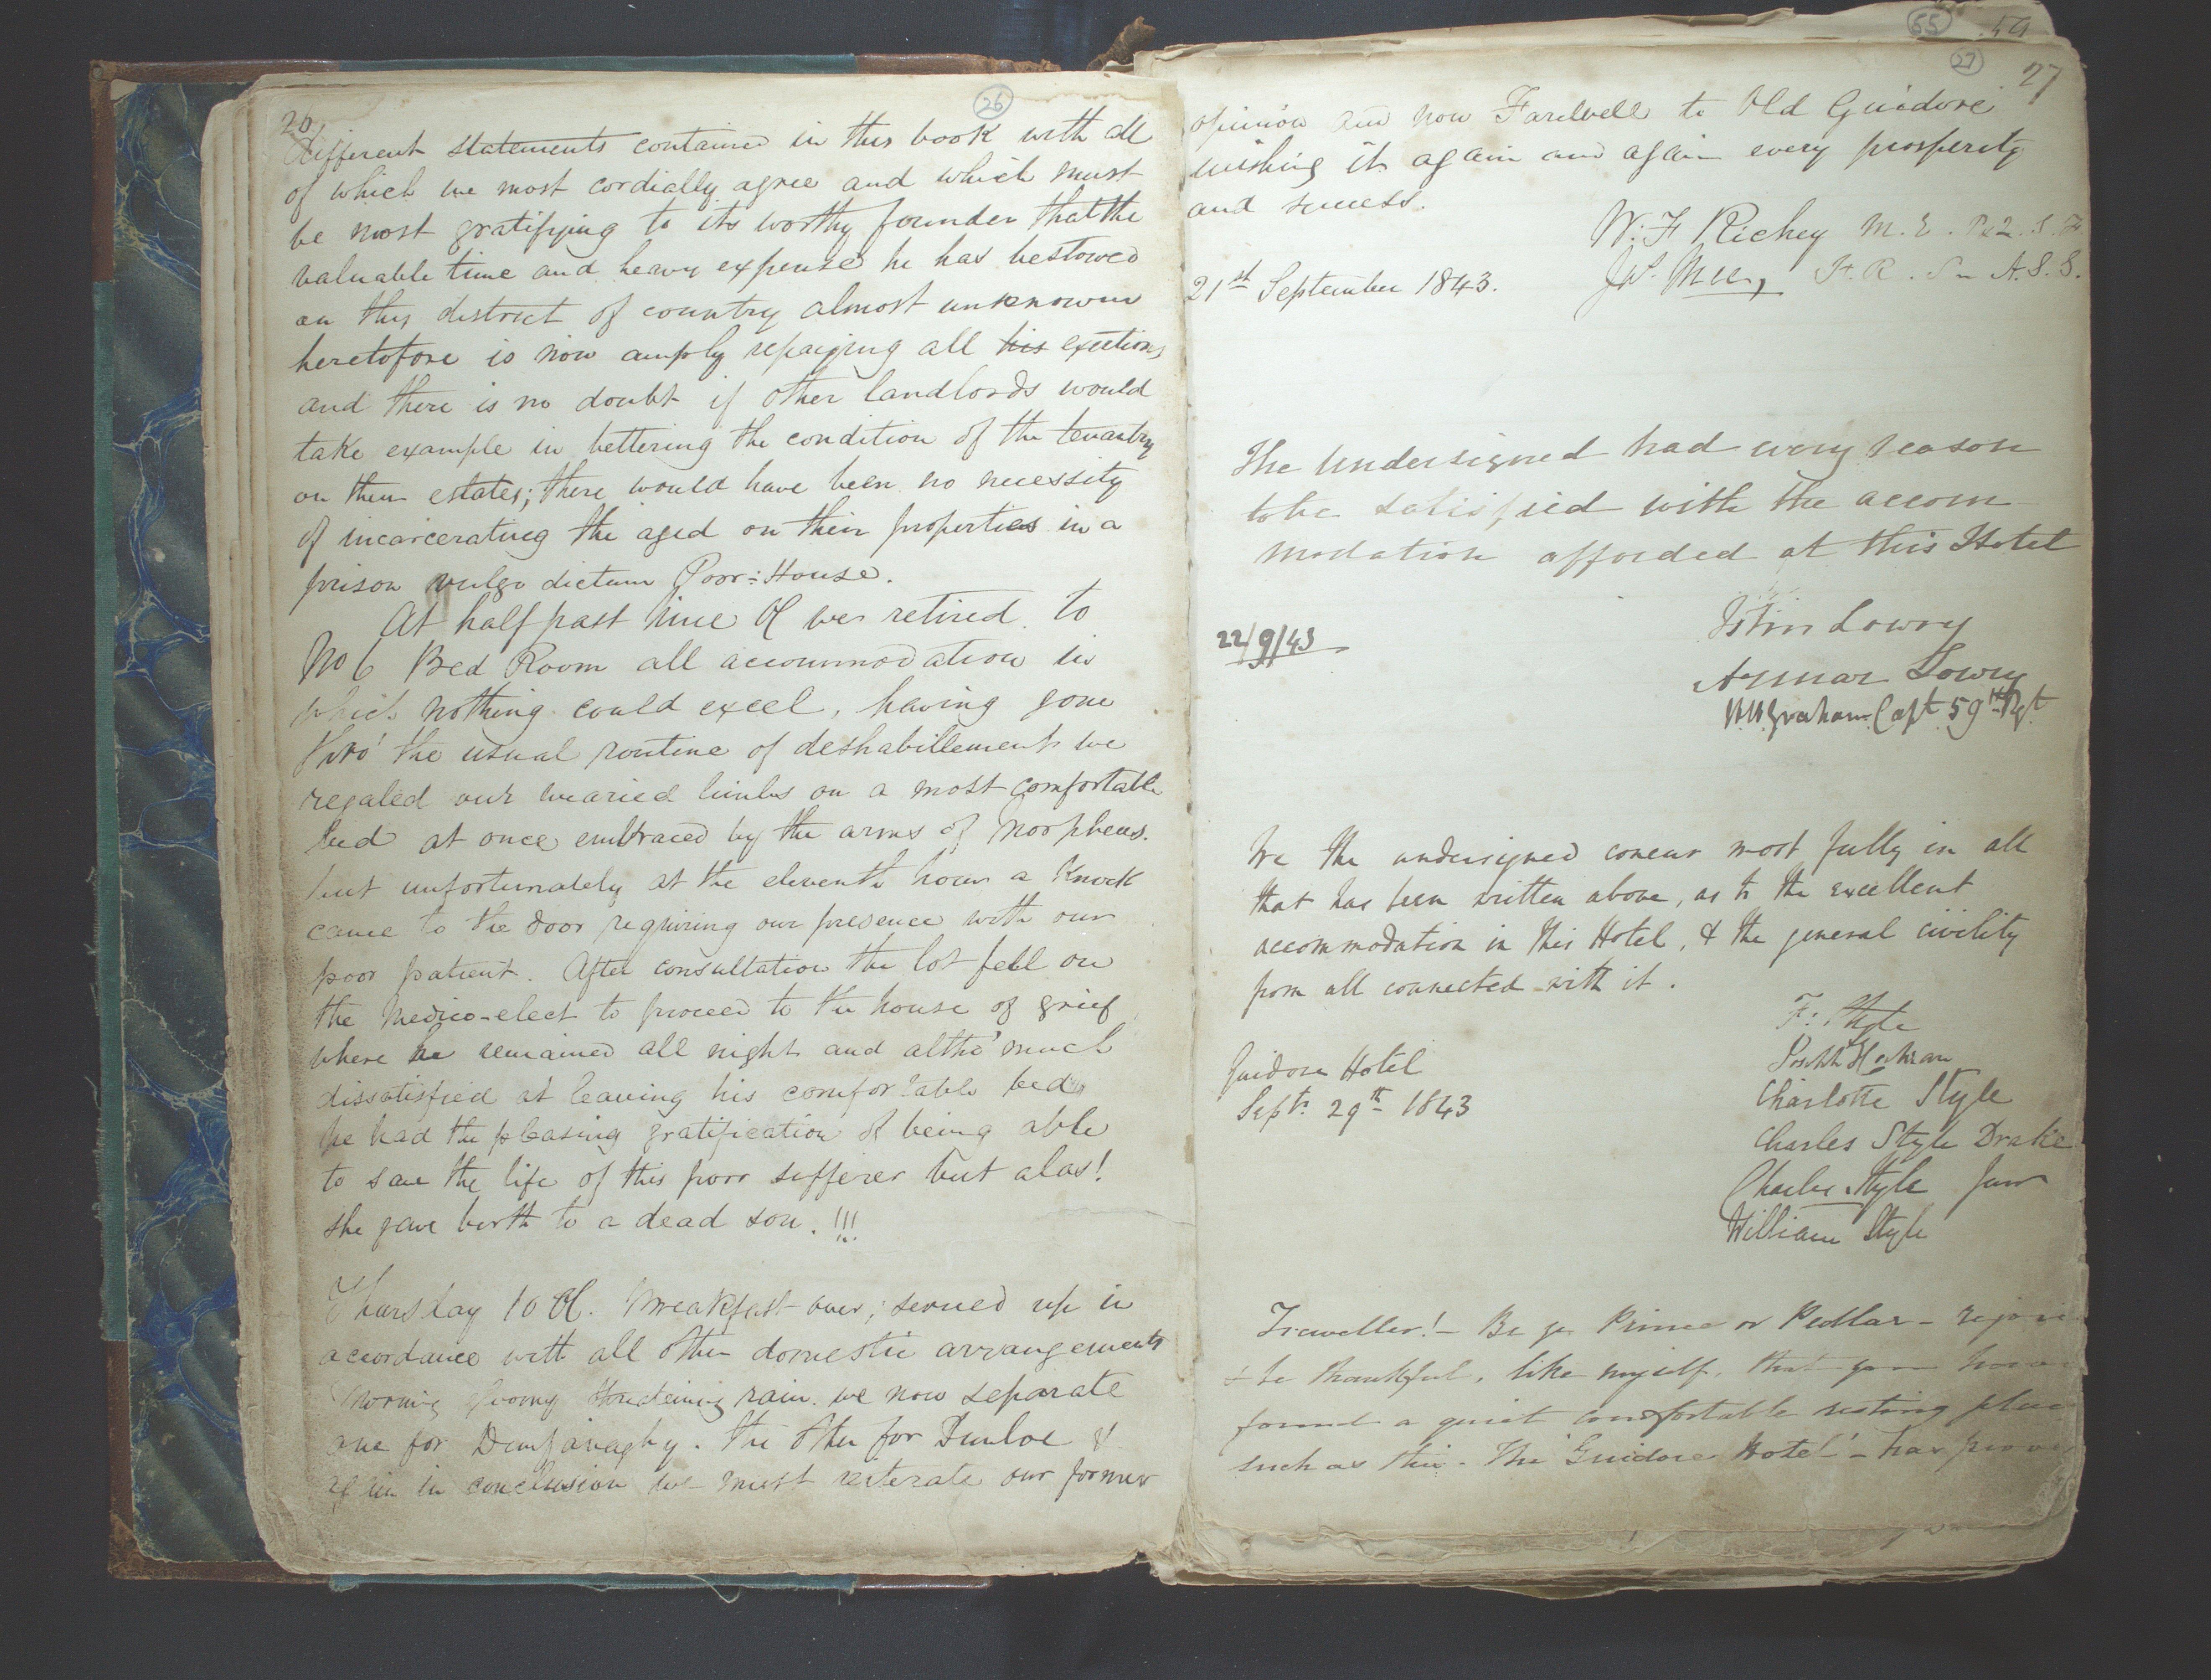 26
26
different statements contained in this book with all
of which we most cordially agree and which must
be most gratifying to its worthy founder that the
valuable time and heavy expense he has bestowed
on this district of country almost unknown
heretofore is now amply repaying all his exertions
and there is no doubt if other landlords would
take example in bettering the condition of the tenantry
on their estates; there would have been no necessity
of incarcerating the aged on their properties in a
prison vulgo dictum Poor-House.
At half past nine Ol we retired to
No 6 Bed Room all accommodation in
which nothing could excel, having gone
thro' the usual routine of deshabillement we
regaled our wearied limbs on a most comfortable
bed at once embraced by the arms of Morpheus.
but unfortunately at the eleventh hour a Knock
came to the door requiring our presence with our
poor patient. After consultation the lot fell on
the medico-elect to proceed to the house of grief
where he remained all night and altho' much
dissatisfied at leaving his comfortable bed
he had the pleasing gratification of being able
to save the life of this poor sufferer but alas!
she gave birth to a dead son. !!!
Thursday 10 Ol. Breakfast over; served up in
accordance with all other domestic arrangements
morning gloomy threatening rain. we now separate
one for Dunfanaghy. the other for Dunloe &
again in conclusion we must reiterate our former
55 59
27 27
opinion and now Farewell to Old Guidore
wishing it again and again every prosperity
and success.
W. F Richey M. E.
21st September 1843.
The Undersigned had every reason
to be satisfied with the accom
modation afforded at this Hotel
22/9/43
Lowry
Armar Lowry
Graham Capt. 59th Rgt.
We the undersigned concur most fully in all
that has been written above, as to the excellent
accommodation in this Hotel, & the general civility
from all connected with it.
Guidore Hotel
Sept. 29th 1843
F: Style
Charlotte Style
Charles Style Drake
Charles Style Junr
William Style
Traveller! - Be ye Prince or Pedlar - rejoice
& be thankful, like myself, that you have
found a quiet comfortable resting place
such as this. The 'Guidore Hotel' - has